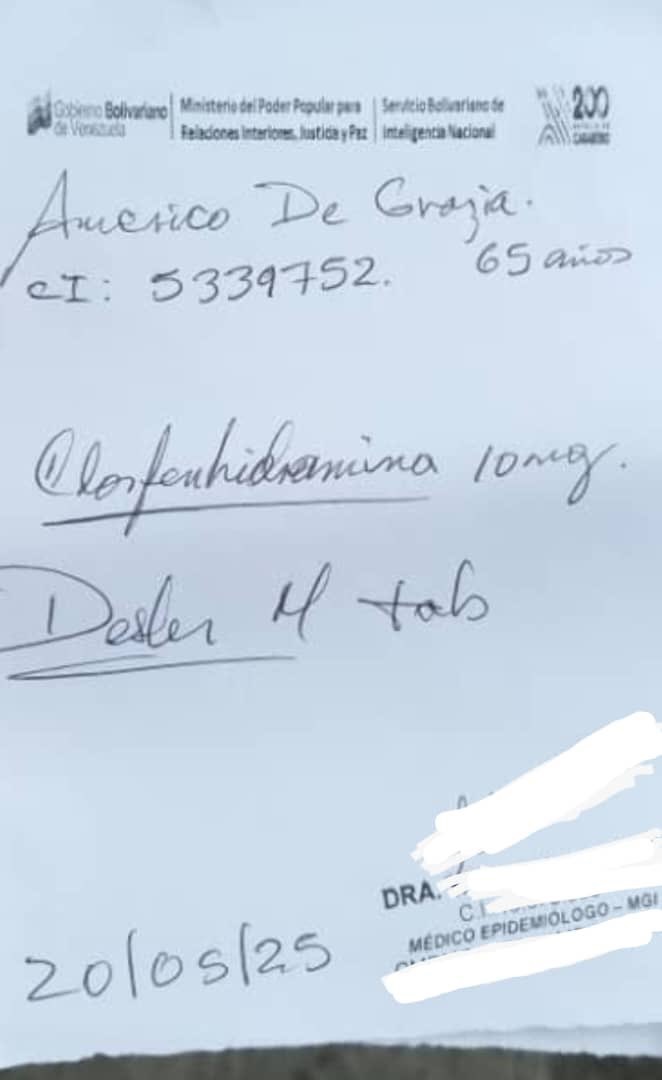 Gobierno Bolivariano de Venezuela
Ministerio del Poder Popular para Relaciones Interiores, Justicia y Paz
Servicio Bolivariano de Inteligencia Nacional
200
CARABOBO
Americo De Grazia.
CI: 5339752. 65 años
Clorfenhidramina 10mg.
Desler M tab
DRA.
C.I.
MÉDICO EPIDEMIÓLOGO - MGI
20/05/25